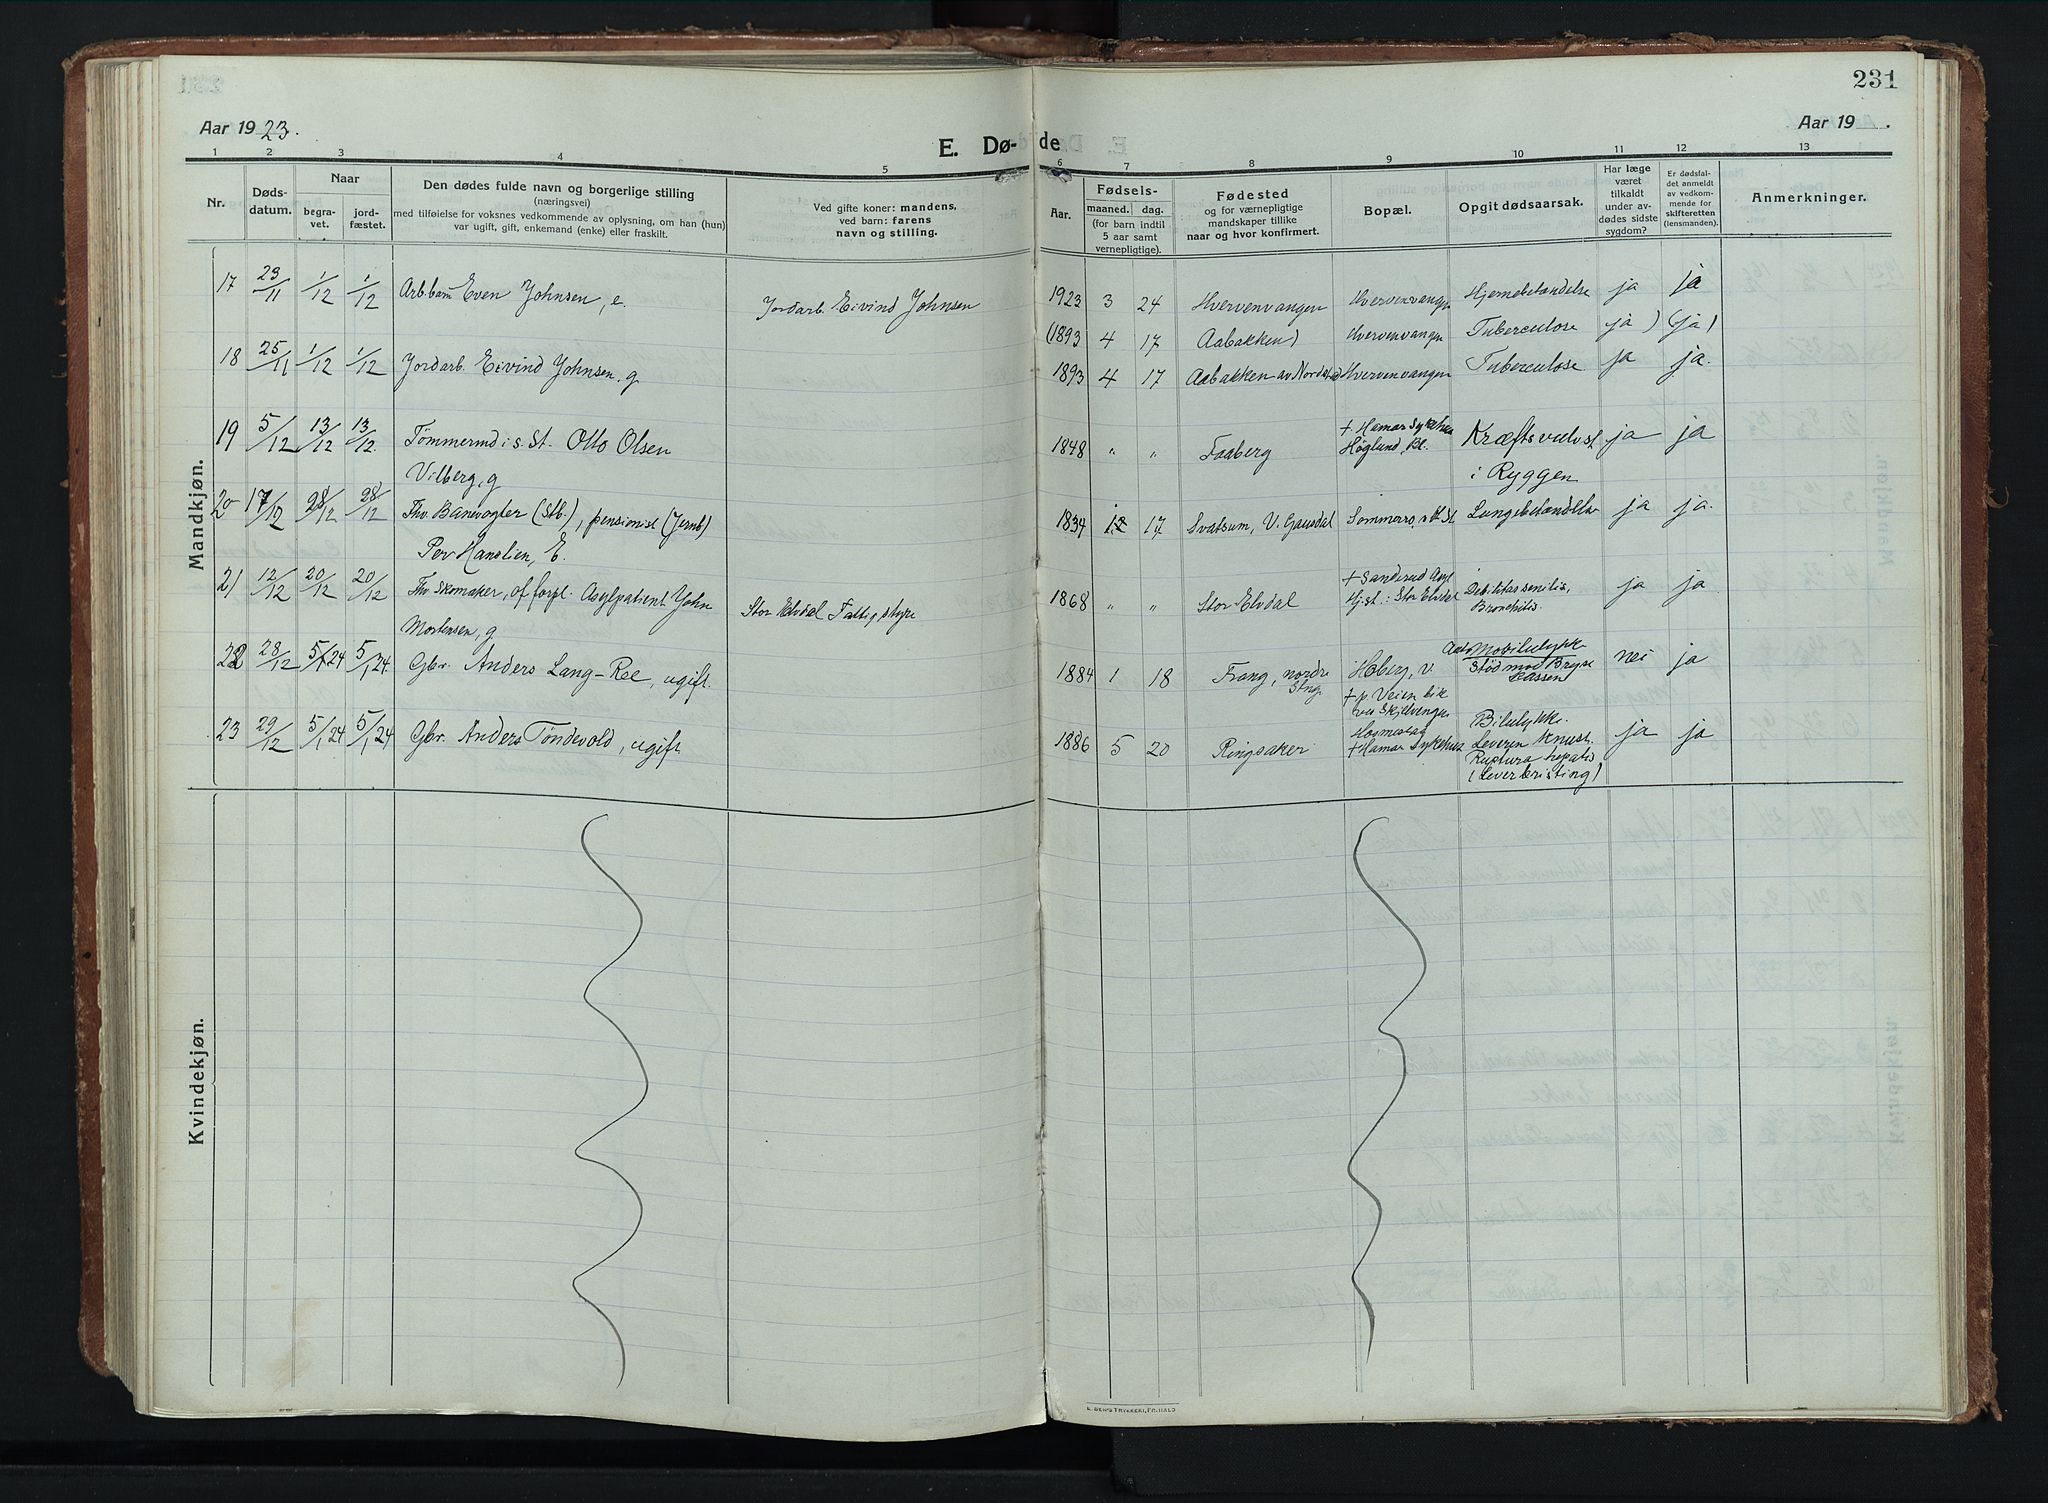 231
Aar 1923.
E. Dø-
de
Aar 19 .
1 2 3 4 5 6 7 8 9 10 11 12 13
Nr.
Døds-
datum.
Naar
begra-
vet.
jord-
fæstet.
Den dødes fulde navn og borgerlige stilling
(næringsvei)
med tilføielse for voksnes vedkommende av oplysning, om han (hun)
var ugift, gift, enkemand (enke) eller fraskilt.
Ved gifte koner: mandens,
ved barn: farens
navn og stilling.
Aar.
Fødsels-
maaned. dag.
(for barn indtil
5 aar samt
vernepligtige).
Fødested
og for værnepligtige
mandskaper tillike
naar og hvor konfirmert.
Bopæl.
Opgit dødsaarsak.
Har læge
været
tilkaldt
under av-
dødes sidste
sygdom?
Er dødsfal-
det anmeldt
av vedkom-
mende for
skifteretten
(lensmanden).
Anmerkninger.
Mandkjøn.
17 23/11 1/12 1/12 Arb.barn Even Johnsen, e. Jordarb. Eivind Johnsen 1923 3 24 Hvervenvangen Hvervenvangen Hjernebetændelse ja ja
(1893 4 17 Aabakken) Hvervenvangen Tuberculose ja) (ja)
18 25/11 1/12 1/12 Jordarb. Eivind Johnsen, g 1893 4 17 Aabakken av Hvervenvangen Tuberculose ja ja.
19 5/12 13/12 13/12 Tømmermd i s. St. Otto Olsen 1848 " " Faaberg + Hamar Sykehus Kræftsvulst ja ja
Vilberg, g Høglund, Bl. i Ryggen
20 17/12 28/12 28/12 Fhv. Banevogter (Stb.), pensionist (Jernb) 1834 12 17 Svatsum, V. Gausdal Sommerro, Lungebetændelse ja ja.
Per Hanslien, E.
21 12/12 20/12 20/12 Fhv. Skomaker, off. forpl. Asylpatient John Stor Elvdal Fattigstyre 1868 " " Stor Elvdal + Sanderud Asyl Debilitas senilis, ja ja
Mortensen, g Hj.st.: Stor Elvdal Bronchitis.
22 28/12 5/1 24 5/1 24. Gbr. Anders Lang-Ree, ugift. 1884 1 18 Vang, nordre Hoberg, v Automobilulykke nei ja
Stng. + p. Veien Stød mod Bryst
ved Skjelvangen kassen
23 29/12 5/1 24 5/1 24 Gbr. Anders Tøndevold, ugift 1886 5 20 Ringsaker + Hamar Sykehus Bilulykke. ja ja
Leveren knust.
Ruptura hepatis
(leverbristing)
Kvindekjøn.